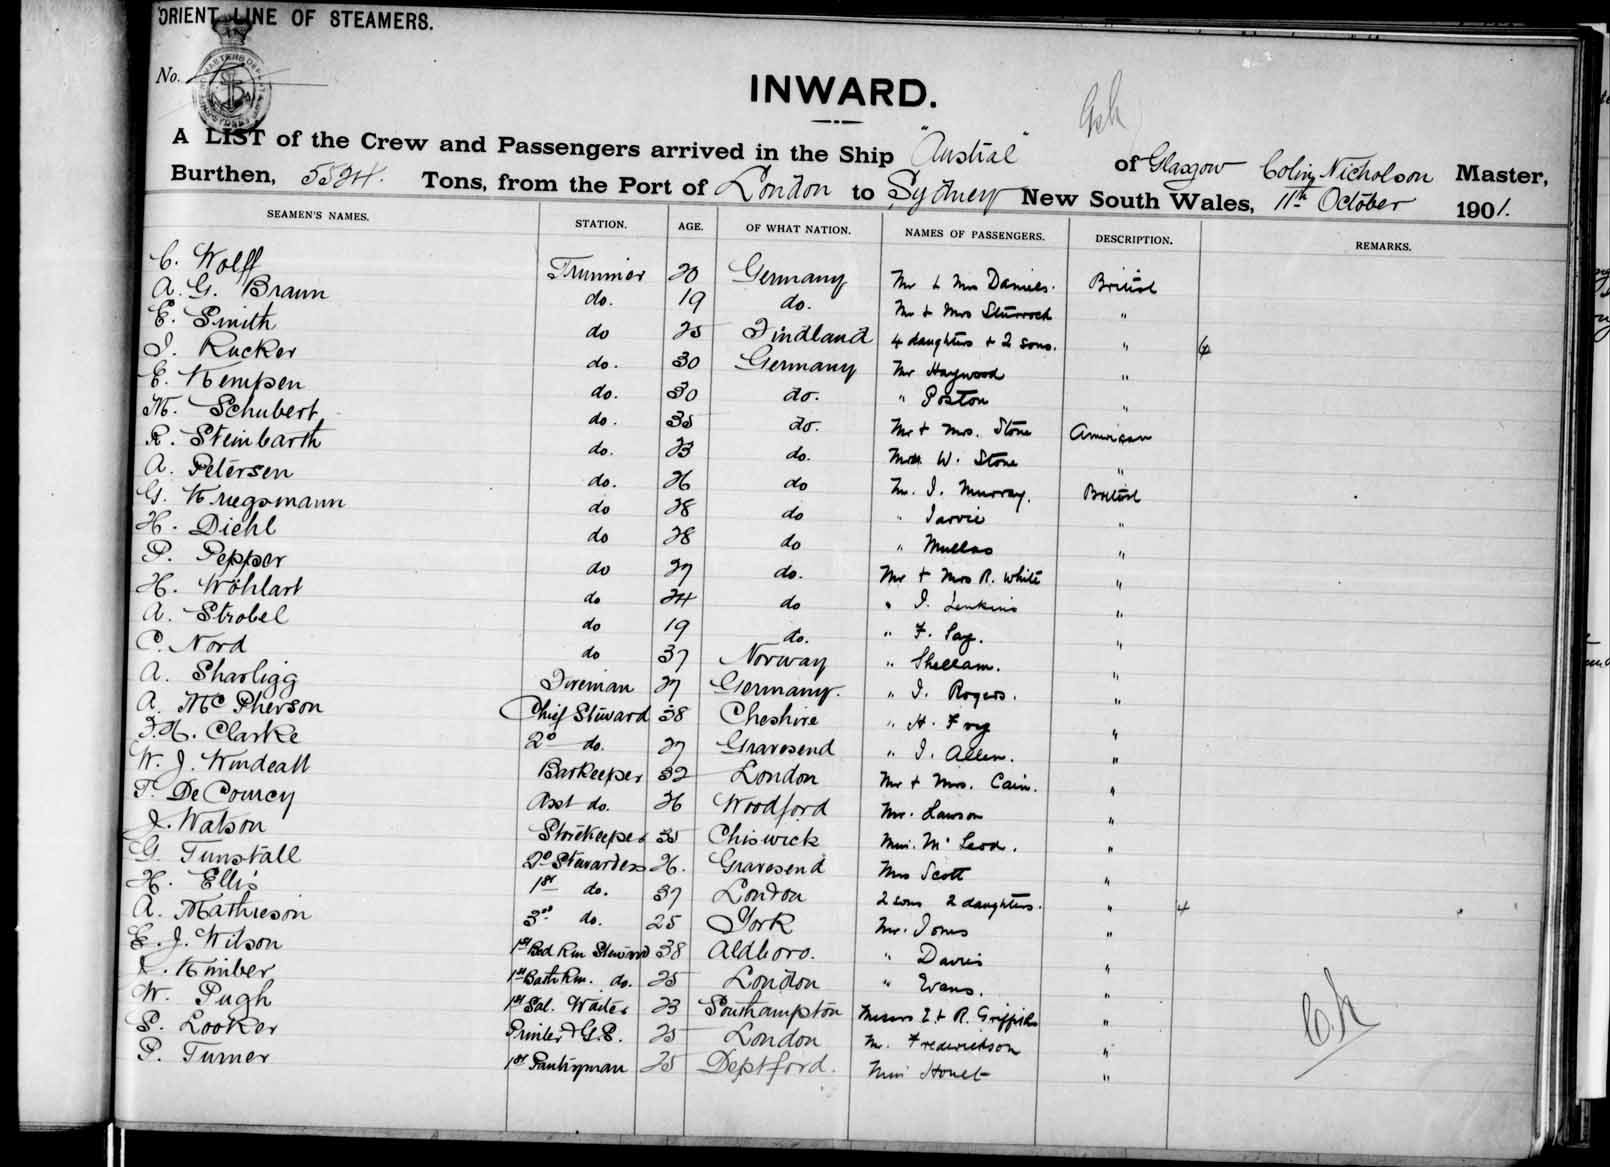 ORIENT LINE OF STEAMERS.
No.
INWARD.
A LIST of the Crew and Passengers arrived in the Ship "Austral" of Glasgow Colin Nicholson Master,
Burthen, 5524. Tons, from the Port of London to Sydney New South Wales, 11th October 1901.
SEAMEN'S NAMES. STATION. AGE. OF WHAT NATION. NAMES OF PASSENGERS. DESCRIPTION. REMARKS.
C. Wolff Trimmer 20 Germany Mr & Mrs Daniels. British
A. G. Braun do. 19 do. Mr & Mrs Sturrock "
E. Smith do 25 Findland 4 daughters & 2 sons. " 6
J. Rucker do. 30 Germany Mr Haywood "
E. Kempen do. 30 do. " Poston "
M. Schubert do. 35 do. Mr & Mrs. Stone American
R. Steinbarth do. 23 do. W. Stone "
A. Petersen do. 26 do Mr. J. Murray. British
G. Kruegsmann do 28 do " Jarvie "
H. Diehl do 28 do " "
P. Pepper do 27 do. Mr & Mrs R. White "
H. Wöhlart do 24 do " J. Jenkins "
A. Strobel do 19 do. " F. "
C. Nord do 37 Norway " Shellam. "
A. Sharligg Fireman 27 Germany. " J. Rogers. "
A. McPherson Chief Steward 38 Cheshire " H. Fry "
F. H. Clarke 2d do. 27 Gravesend " J. Allen. "
W. J. Windeatt Barkeeper 32 London Mr & Mrs. Cain. "
T. De Courcy Asst do. 26 Woodford Mr. Lawson "
J. Watson Storekeeper 35 Chiswick Miss. McLeod. "
G. Tunstall 2d Stewardess 26. Gravesend Mrs Scott "
H. Ellis 1st do. 37 London 2 sons 2 daughters. " 4
A. Mathieson 3rd do. 25 York Mr. Jones "
E. J. Wilson 1st Bed Rm Steward 38 Aldboro. " Davies "
Kimber 1st Bath Rm. do. 25 London " Evans. "
W. Pugh 1st Sal. Waiter 23 Southampton Messrs E & R. Griffiths "
S. Looker Printer & G.S. 25 London Mr. Frederickson "
P. Turner 1st Pantryman 25 Deptford. Miss "